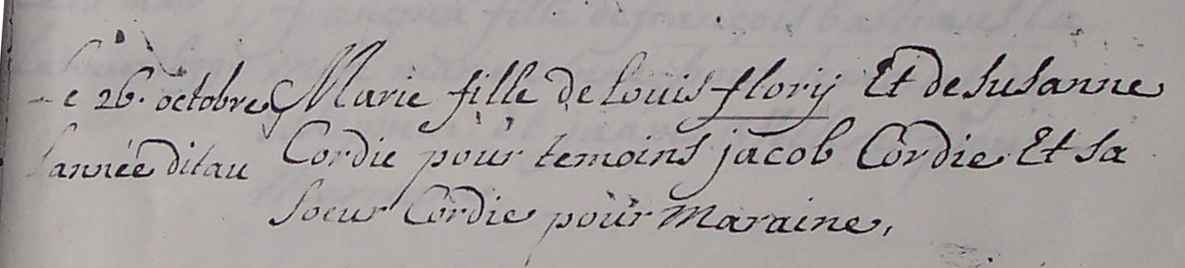 Le 26. octobre Marie fille de louis florij Et de susanne
l'année ditau Cordie pour temoins jacob Cordie Et sa
soeur Cordie pour maraine,